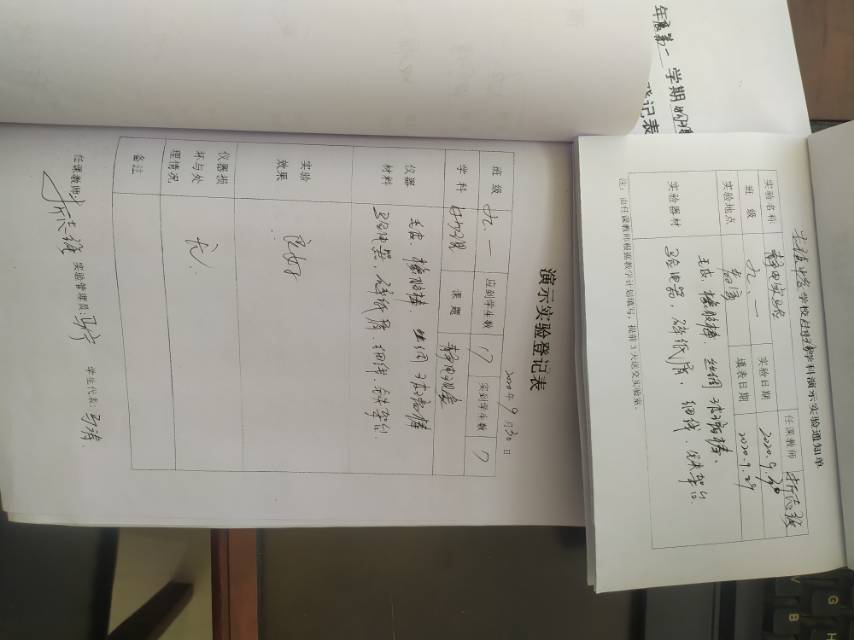 年度第二学期的
登记表
演示实验登记表
2020年9月30日
班级 九.一 应到学生数 17 实到学生数
学科 课题 静电现象
仪器材料 毛皮、橡胶棒、丝绸、玻璃棒
验电器、碎纸屑、细线、铁架台
实验效果 良好
仪器损坏与处理情况 无
备注
任课教师: 实验管理员: 学生代表:
学校 学科演示实验通知单
任课教师
实验名称 静电实验 实验日期 2020.9.30
班级 九.一 填表日期 2020.9.29
实验地点
实验器材 毛皮、橡胶棒、丝绸、玻璃棒、
验电器、碎纸屑、细线、铁架台
注:由任课教师根据教学计划填写,提前3天送交实验室。